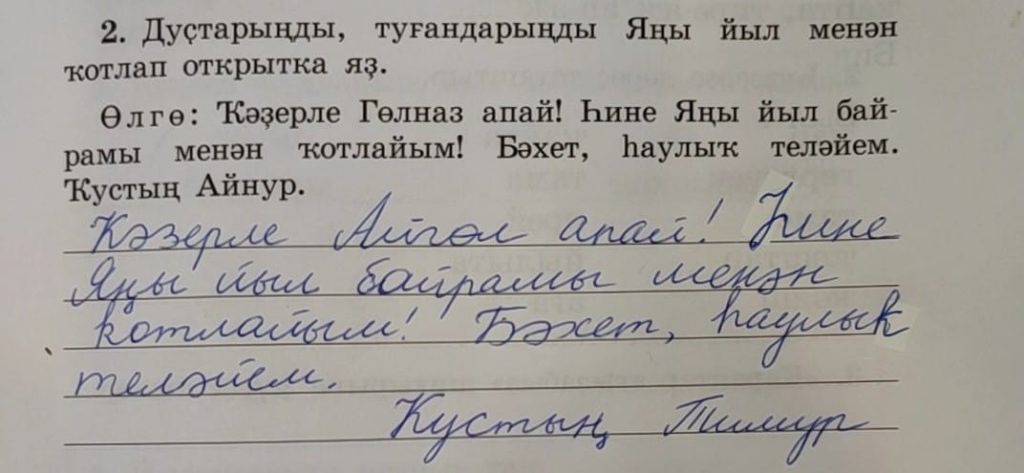 2. Дуҫтарыңды, туғандарыңды Яңы йыл менән
ҡотлап открытка яҙ.
Өлгө: Ҡәҙерле Гөлназ апай! Һине Яңы йыл бай-
рамы менән ҡотлайым! Бәхет, һаулыҡ теләйем.
Ҡустың Айнур.
Кәзерле Айгөл апай! Һине
Яңы йыл байрамы менән
котлайым! Бәхет, һаулык
теләйем.
Кустың Тимур